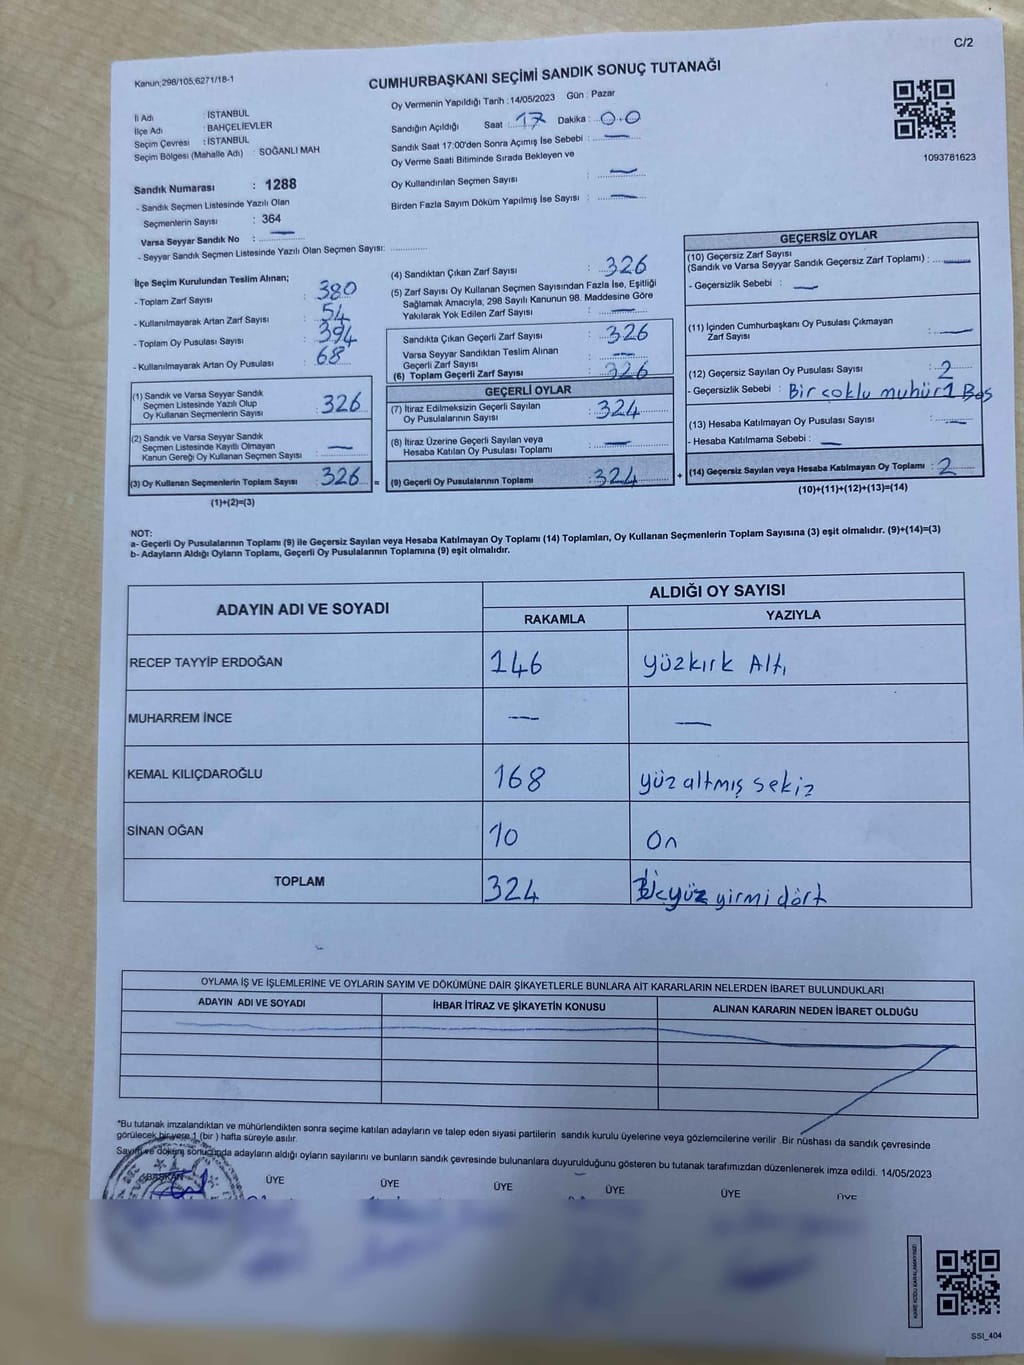 C/2
Kanun;298/105,6271/18-1
CUMHURBAŞKANI SEÇİMİ SANDIK SONUÇ TUTANAĞI
İl Adı : İSTANBUL
İlçe Adı : BAHÇELİEVLER
Seçim Çevresi : İSTANBUL
Seçim Bölgesi (Mahalle Adı) : SOĞANLI MAH
Oy Vermenin Yapıldığı Tarih : 14/05/2023 Gün : Pazar
Sandığın Açıldığı Saat : 17 Dakika : 0.0
Sandık Saat 17:00'den Sonra Açımış İse Sebebi : —
Oy Verme Saati Bitiminde Sırada Bekleyen ve
Oy Kullandırılan Seçmen Sayısı : —
Birden Fazla Sayım Döküm Yapılmış İse Sayısı : —
1093781623
Sandık Numarası : 1288
- Sandık Seçmen Listesinde Yazılı Olan
Seçmenlerin Sayısı : 364
Varsa Seyyar Sandık No : —
- Seyyar Sandık Seçmen Listesinde Yazılı Olan Seçmen Sayısı:
İlçe Seçim Kurulundan Teslim Alınan;
- Toplam Zarf Sayısı : 380
- Kullanılmayarak Artan Zarf Sayısı : 54
- Toplam Oy Pusulası Sayısı : 394
- Kullanılmayarak Artan Oy Pusulası : 68
(1) Sandık ve Varsa Seyyar Sandık
Seçmen Listesinde Yazılı Olup
Oy Kullanan Seçmenlerin Sayısı : 326
(2) Sandık ve Varsa Seyyar Sandık
Seçmen Listesinde Kayıtlı Olmayan
Kanun Gereği Oy Kullanan Seçmen Sayısı : —
(3) Oy Kullanan Seçmenlerin Toplam Sayısı : 326 =
(1)+(2)=(3)
(4) Sandıktan Çıkan Zarf Sayısı : 326
(5) Zarf Sayısı Oy Kullanan Seçmen Sayısından Fazla İse, Eşitliği
Sağlamak Amacıyla, 298 Sayılı Kanunun 98. Maddesine Göre
Yakılarak Yok Edilen Zarf Sayısı : —
Sandıkta Çıkan Geçerli Zarf Sayısı : 326
Varsa Seyyar Sandıktan Teslim Alınan
Geçerli Zarf Sayısı : —
(6) Toplam Geçerli Zarf Sayısı : 326
GEÇERLİ OYLAR
(7) İtiraz Edilmeksizin Geçerli Sayılan
Oy Pusulalarının Sayısı : 324
(8) İtiraz Üzerine Geçerli Sayılan veya
Hesaba Katılan Oy Pusulası Toplamı : —
(9) Geçerli Oy Pusulalarının Toplamı : 324 +
GEÇERSİZ OYLAR
(10) Geçersiz Zarf Sayısı
(Sandık ve Varsa Seyyar Sandık Geçersiz Zarf Toplamı) : —
- Geçersizlik Sebebi : —
(11) İçinden Cumhurbaşkanı Oy Pusulası Çıkmayan
Zarf Sayısı : —
(12) Geçersiz Sayılan Oy Pusulası Sayısı : 2
- Geçersizlik Sebebi : Bir çoklu muhür 1 Boş
(13) Hesaba Katılmayan Oy Pusulası Sayısı : —
- Hesaba Katılmama Sebebi : —
(14) Geçersiz Sayılan veya Hesaba Katılmayan Oy Toplamı : 2
(10)+(11)+(12)+(13)=(14)
NOT:
a- Geçerli Oy Pusulalarının Toplamı (9) ile Geçersiz Sayılan veya Hesaba Katılmayan Oy Toplamı (14) Toplamları, Oy Kullanan Seçmenlerin Toplam Sayısına (3) eşit olmalıdır. (9)+(14)=(3)
b- Adayların Aldığı Oyların Toplamı, Geçerli Oy Pusulalarının Toplamına (9) eşit olmalıdır.
ADAYIN ADI VE SOYADI
ALDIĞI OY SAYISI
RAKAMLA YAZIYLA
RECEP TAYYİP ERDOĞAN 146 yüzkırk Altı
MUHARREM İNCE — —
KEMAL KILIÇDAROĞLU 168 yüz altmış sekiz
SİNAN OĞAN 10 On
TOPLAM 324 Üçyüz yirmi dört
OYLAMA İŞ VE İŞLEMLERİNE VE OYLARIN SAYIM VE DÖKÜMÜNE DAİR ŞİKAYETLERLE BUNLARA AİT KARARLARIN NELERDEN İBARET BULUNDUKLARI
ADAYIN ADI VE SOYADI İHBAR İTİRAZ VE ŞİKAYETİN KONUSU ALINAN KARARIN NEDEN İBARET OLDUĞU
*Bu tutanak imzalandıktan ve mühürlendikten sonra seçime katılan adayların ve talep eden siyasi partilerin sandık kurulu üyelerine veya gözlemcilerine verilir .Bir nüshası da sandık çevresinde
görülecek bir yere 1 (bir ) hafta süreyle asılır.
Sayım ve döküm sonucunda adayların aldığı oyların sayılarını ve bunların sandık çevresinde bulunanlara duyurulduğunu gösteren bu tutanak tarafımızdan düzenlenerek imza edildi. 14/05/2023
BAŞKAN ÜYE ÜYE ÜYE ÜYE ÜYE ÜYE
KARE KODU KARALAMAYINIZ!
SSI_404